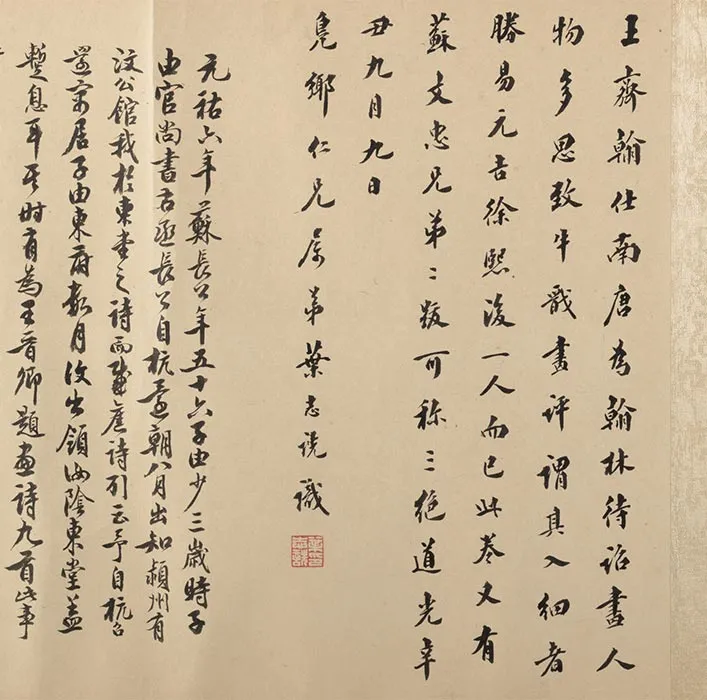 王齊翰仕南唐為翰林待詔畫人
物多思致牛戩畫評謂其入細者
勝易元吉徐熙後一人而已此卷又有
蘇文忠兄弟二跋可称三絶道光辛
丑九月九日
堯鄉仁兄屬弟葉志詵識
元祐六年蘇長公年五十六子由少三歲時子
由官尚書右丞長公自杭還朝八月出知潁州有
汶公館我於東堂之詩而感舊詩引云予自杭召
還寓居子由東府數月復出領汝陰東堂蓋
暫息耳其時有為王晉卿題畫詩九首此事